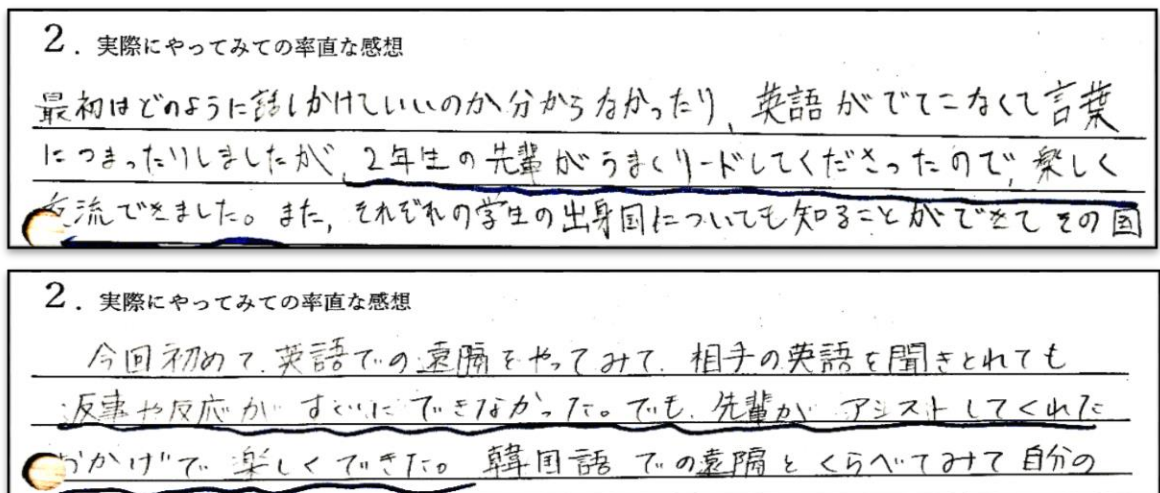 2. 実際にやってみての率直な感想
最初はどのように話しかけていいのか分からなかったり、英語がでてこなくて言葉
につまったりしましたが、2年生の先輩がうまくリードしてくださったので、楽しく
交流できました。また、それぞれの学生の出身国についても知ることができてその国
2. 実際にやってみての率直な感想
今回初めて、英語での遠隔をやってみて、相手の英語を聞きとれても
返事や反応が すぐにできなかった。でも、先輩が アシストしてくれた
おかげで 楽しくできた。韓国語での遠隔とくらべてみて自分の